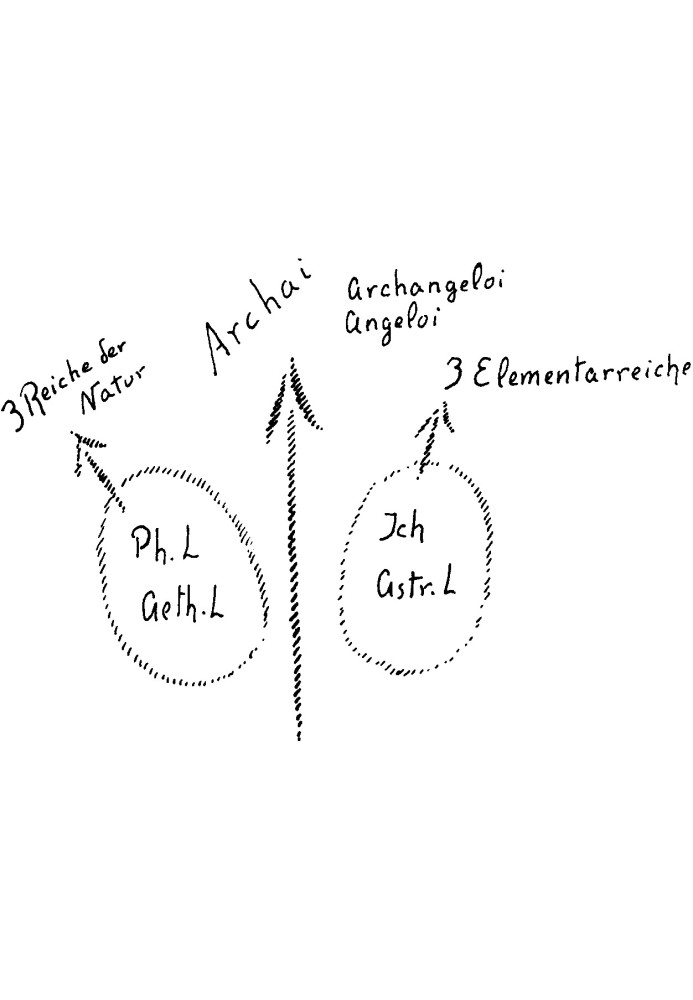 Archai
Archangeloi
Angeloi
3 Reiche der
Natur
3 Elementarreiche
Ph. L
Aeth. L
Ich
Astr. L